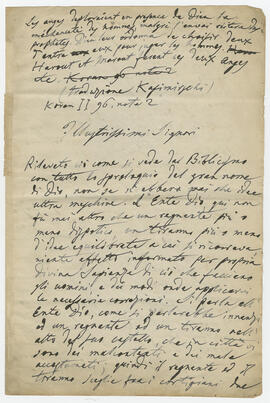 Les anges deploraient en presence de Dieu la
mechanceté des hommes malgré l'envoi reitéré des
prophètes. Dieu leur ordonna de choisir deux
d'entre eux pour juger les hommes
Harout et Marout furent ces deux anges
etc. Koran 96 nota 2
(traduzione Kasimirski)
Koran II 96, nota 2
Illustrissimi Signori
Rilevato ciò come si vede dal Biblicismo
con tutto lo sproloquio del gran nome
di Dio, non se si ebbe mai che idee
ultra meschine. L'Ente Dio qui non
fu mai altro che un regnante più o
meno dispotico, un tiranno più o meno
d'idee equilibrate a cui si
niente effetto informato per propria
divina Sapienza di ciò che facevano
gli uomini, e dei modi onde applicarvi
le necessarie correzioni. Si parla all'
Ente Dio, come si parlerebbe innanzi
ad un regnante ad un tiranno nell'
alto del suo castello, che in città vi
sono dei malcontenti e dei male
accostumati; quindi il regnante od il
tiranno sceglie fra i cortigiani due